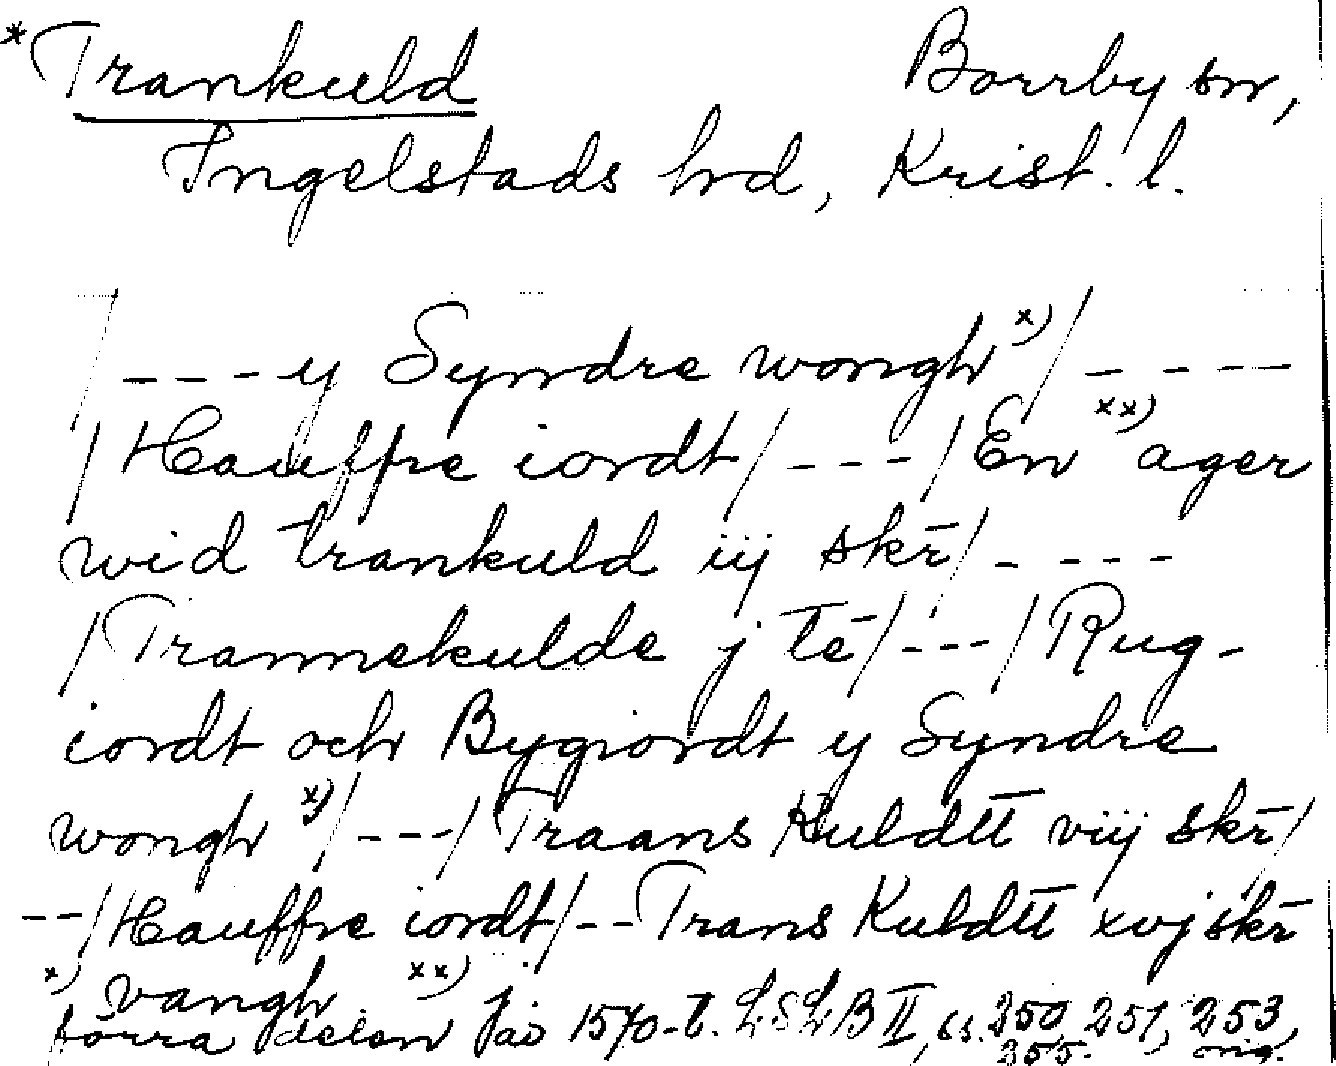 *Trankuld Borrby sn,
Ingelstads hrd, Krist. l.
/ - - - y Syndre wongh x) / - - - -
/ Hauffre iordt / - - - / En xx) ager
wid trankuld iij skr̄ / - - - -
/ Trannekulde j tē / - - - / Rug-
iordt och Bygiordt y Syndre
wongh x) / - - - / Traans Kuldtt viij skr̄ /
- - / Hauffre iordt / - - Trans Kuldtt xvj skr̄
x) vangh xx) j
förra delen av 1570-t. LSLB II, ss. 250, 251, 253,
255. orig.